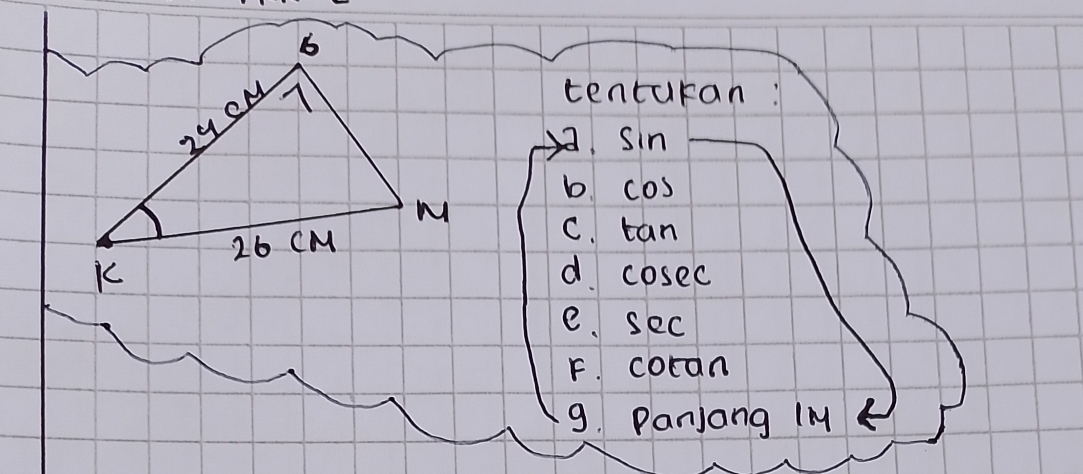 6
24 CM
M
26 CM
K
tentukan :
a. sin
b. cos
c. tan
d. cosec
e. sec
F. cotan
g. Panjang lM